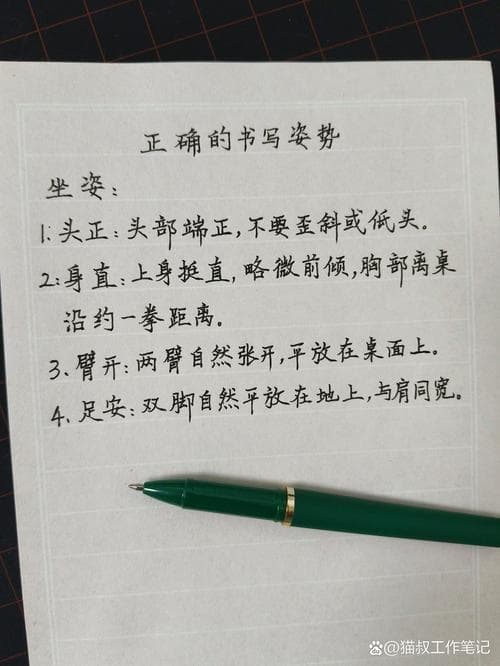 正确的书写姿势
坐姿：
1.头正：头部端正，不要歪斜或低头。
2.身直：上身挺直，略微前倾，胸部离桌
沿约一拳距离。
3.臂开：两臂自然张开，平放在桌面上。
4.足安：双脚自然平放在地上，与肩同宽。
猫叔工作笔记